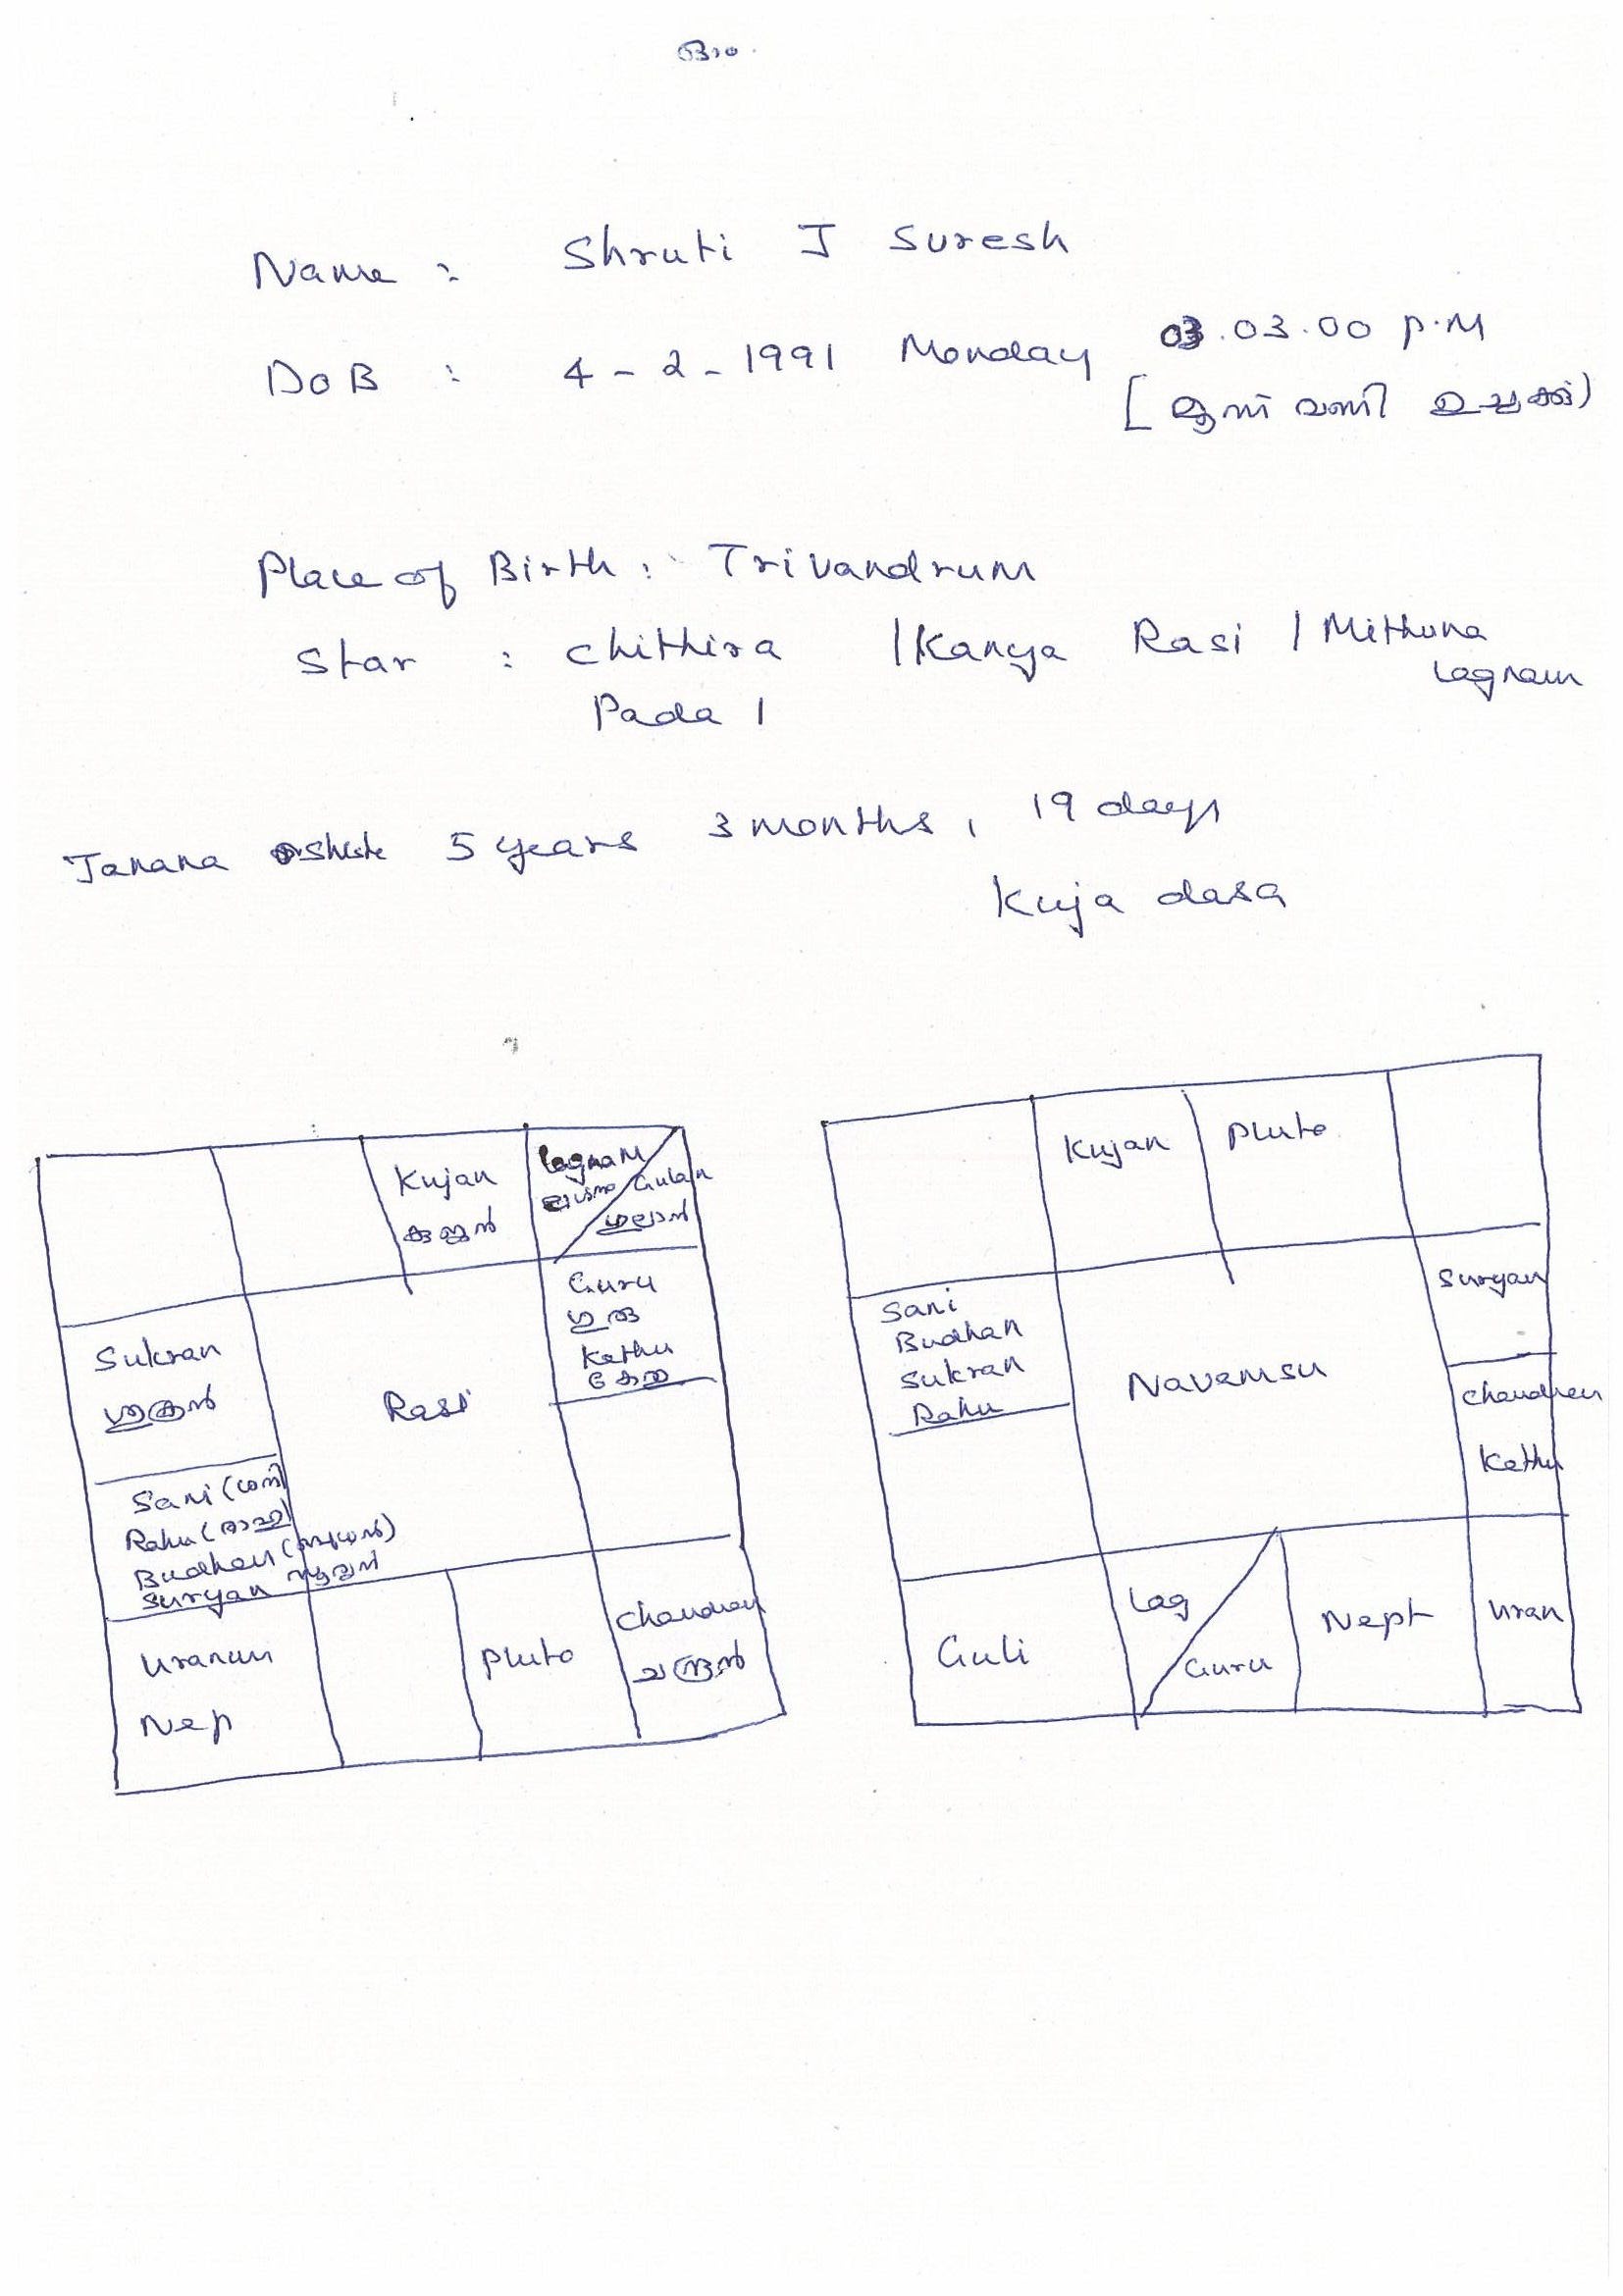 ഓം.
Name : Shruti J Suresh
DoB : 4 - 2 - 1991 Monday 03.03.00 P.M
[മൂന്ന് മണി ഉച്ചക്ക്)
Place of Birth : Trivandrum
Star : Chithira / Kanya Rasi / Mithuna Lagnam
Pada 1
Janana 5 years 3 months, 19 days
Kuja dasa
Kujan
കുജൻ
Lagnam
ലഗ്നം Gulan
ഗുലാൻ
Sukran
ശുക്രൻ
Rasi
Guru
ഗുരു
Kethu
കേതു
Sani (ശനി
Rahu (രാഹു)
Budhan (ബുധൻ)
Suryan സൂര്യൻ
Uranun
Nep
Pluto
Chandran
ചന്ദ്രൻ
Kujan
Pluto
Sani
Budhan
Sukran
Rahu
Navamsu
Suryan
Chandran
Kethu
Guli
Lag
Guru
Nept
Uran